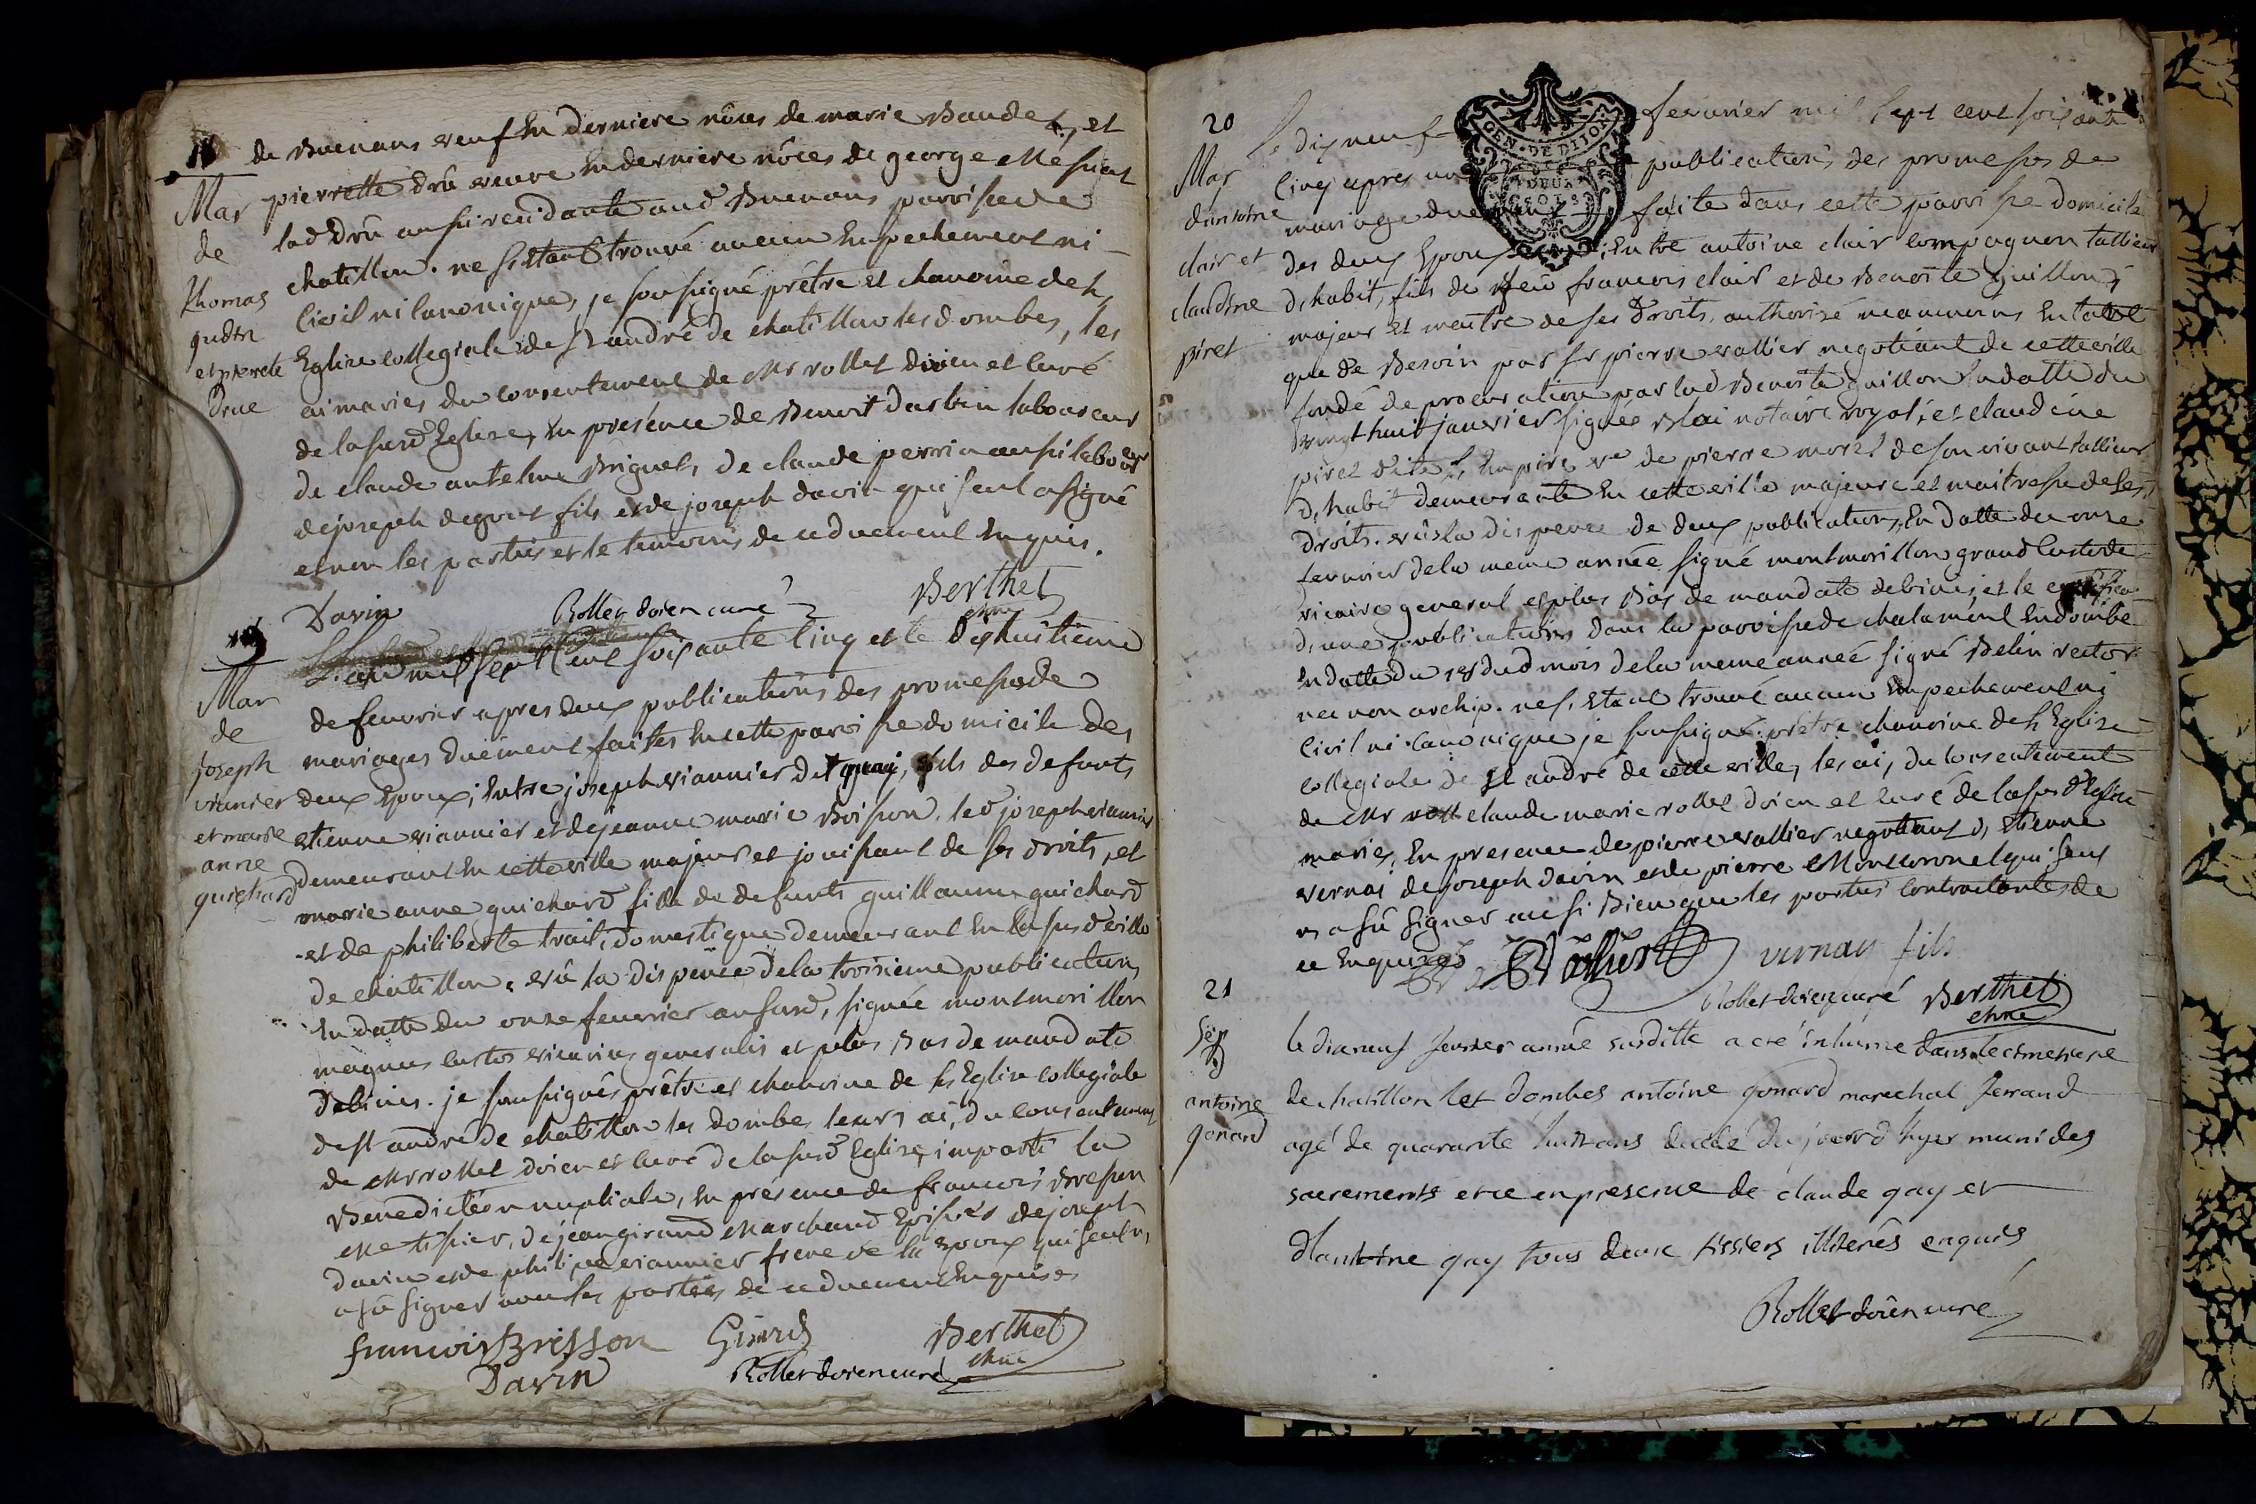 18
Mar
de
thomas
gudin
et pierrete
Drue
de Buenans veuf en derniere nôces de marie Baudet, et
pierrette drû veuve en derniere nôces de george
lad drû aussi residante aud Buenans parroisse de
chatillon. ne s'etant trouvé aucun empechement ni
Civil ni Canonique, je soussigné prêtre et chanoine de l'
Eglise collegiale de st andré de chatillon les dombes, les
ai mariés du consentement de Mr rollet doien et curé
de la susd Eglise, en présence de Benoit Darbin laboureur
de claude antelme Briguet, de claude perrin aussi laboureur
de joseph degout fils et de joseph davin qui seul a signé
et non les parties et le temoins de ce duement enquis.
Davin
Rollet doien curé
Berthet
chne
19
Mar
de
joseph
vianier
et marie
anne
guichard
L'an mil sept Cent soixante Cinq et le Dixhuitieme
de fevrier apres deux publications des promesses de
mariages duëment faites en cette paroisse domicile des
deux Epoux; Entre joseph viannier dit fils des defunts
etienne viannier et de jeanne marie Boisson, led joseph viannier
demeurant en cette ville majeur et jouissant de ses droits, et
marie anne guichard fille de defunts guillaume guichard
et de philiberte trait, domestique demeurant en la susd ville
de chatillon. vû la dispence de la troisieme publication
en datte du onze feuvrier an susd, signée montmorillon
magnus custos vicarius generalis et plus Bas de mandato
debinis. je soussignés prêtre et chanoine de l'Eglise collegiale
de st andré de chatillon les dombes leurs ai, du consentement
de Mr rollet doien et curé de la susd Eglise, imparti la
Benediction nuptiale, en présence de francois Bresson
Me tissier, de jean giraud Marchand Epissier de joseph
davin et de philipe viannier frere de la Epoux qui seul n'
a sû signer non les parties de ce duement enquises
francois Brisson
Girard
Berthet
chne
Davin
Rollet doien curé
20
Mar
d'antoine
clair et
claudine
piret
GEN. DE DIJON
DEUX
SOLS
Le dix neuf fevrier mil sept cent soixante
Cinq apres une publications des promesses de
mariage duement faite dans cette parroisse domicile
des deux Epoux; Entre antoine clair compagnon tallieur
d'habit, fils de feu francois clair et de Benoite guillon,
majeur et maitre de ses Droits, authorisé neanmoins en tant
que de Besoin par sr pierre vallier negotiant de cette ville
fondé de procuration par lad Benoite guillon en datte du
vingt huit janvier signée Blai notaire royal; et claudine
piret dite l'Empire ve de pierre morel de son vivant tallieur
d'habit demeurante en cette ville majeure et maitresse de ses
droits. vûs la dispence de deux publications, En datte du onze
fevrier de la meme année signé montmorillon grand Custode
vicaire general et plus Bas de mandato debinis; et le certifica
d'une publications dans la parroisse de chalamént en dombe
en datte du 18 dud mois de la meme annéé signé Belin rector
nec non archip. ne s'Etant trouvé aucun Empechement ni
Civil ni Canonique je soussigné prêtre chanoine de l'Eglise
collegiale de st andré de cette ville, les ai, du consentement
de Mr claude marie rollet doien et curé de la susd Eglise
mariés, En presence de pierre vallier negotiant d'Etienne
vernai de joseph davin et de pierre Montcoronel qui seul
n'a sû signer aussi Bien que les parties contractantes de
ce enquises
Vallier
vernay fils
Rollet doien curé
Berthet
chne
21
Sép
antoine
gonard
le dix neuf fevrier année susditte a eté inhumé dans le cimetiere
de chatillon les dombes antoine gonard marechal ferrand
agé de quarante huit ans decédé du jour d'hyer muni des
sacrements et ce en presence de claude gay et
d'antoine gay tous deux tissiers illiterés enquis
Rollet doien curé